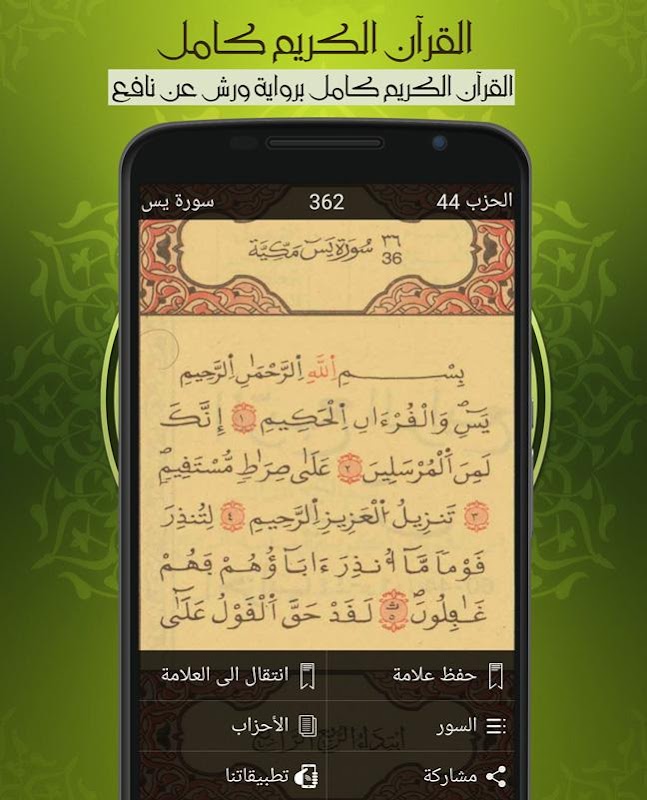 القرآن الكريم كامل
القرآن الكريم كامل برواية ورش عن نافع
الحزب 44 362 سورة يس
٣٦
36
سُورَةُ يَسٓ مَكِّيَّة
بِسْمِ اِ۬للَّهِ اِ۬لرَّحْمَٰنِ اِ۬لرَّحِيمِ
يَسٓ وَالْقُرْءَانِ اِ۬لْحَكِيمِ ١ إِنَّكَ
لَمِنَ اَ۬لْمُرْسَلِينَ ٢ عَلَىٰ صِرَٰطٖ مُّسْتَقِيمٖ
٣ تَنزِيلُ اُ۬لْعَزِيزِ اِ۬لرَّحِيمِ ٤ لِتُنذِرَ
قَوْماٗ مَّآ أُنذِرَ ءَابَآؤُهُمْ فَهُمْ
غَٰفِلُونَ ٥ لَقَدْ حَقَّ اَ۬لْقَوْلُ عَلَىٰٓ
حفظ علامة انتقال الى العلامة
السور الأحزاب
مشاركة تطبيقاتنا